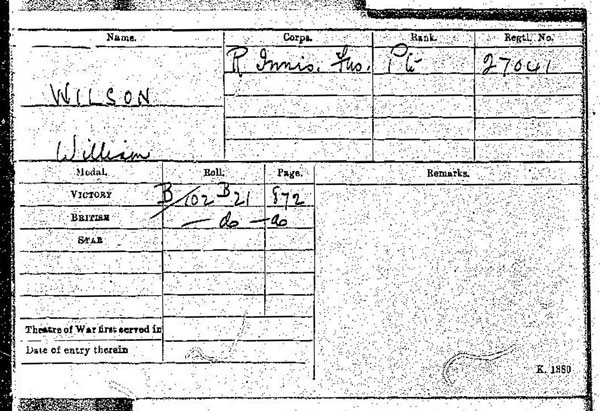 Name. Corps. Rank. Regtl. No.
R Innis. Fus. Pte 27041
WILSON
William
Medal. Roll. Page. Remarks.
VICTORY B/102 B21 872
BRITISH — do — do
STAR
Theatre of War first served in
Date of entry therein
K. 1380